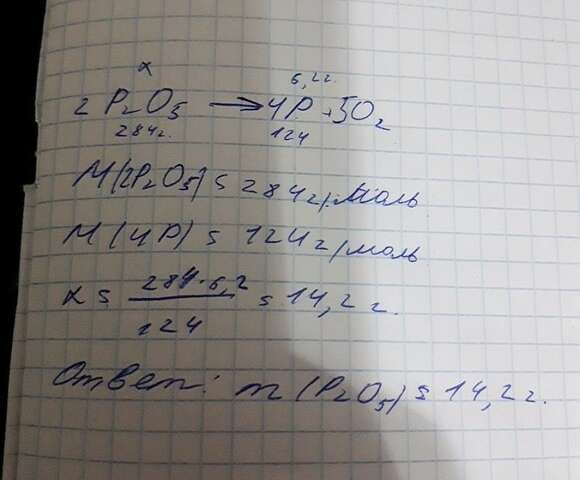 x 6,2г.
2 P₂O₅ → 4P + 5O₂
284г. 124
M(2P₂O₅) = 284г/моль
M(4P) = 124г/моль
x = 284·6,2 / 124 = 14,2г.
Ответ: m(P₂O₅) = 14,2г.